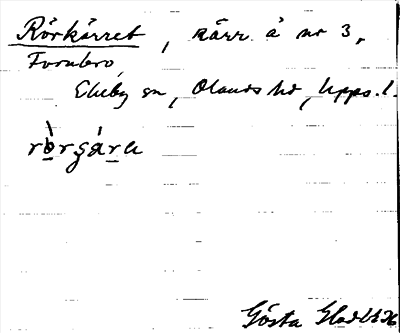 Rörkärret, kärr å nr 3,
Fornbro,
Ekeby sn, Olands hd, Upps. l.
rò̱rgá̱rɐ
Gösta